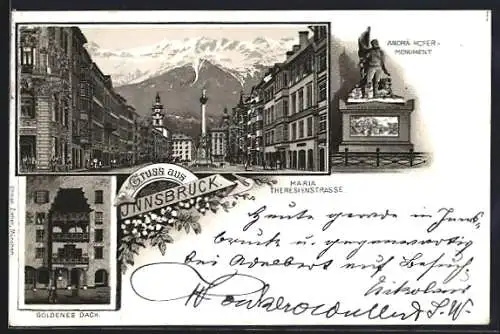 ANDRÄ-HOFER-
MONUMENT
Gruss aus
INNSBRUCK.
MARIA
THERESIENSTRASSE
GOLDENES DACH.
Heute gerade in Inns-
bruck u. gegenwärtig
bei Adelbert auf Besuch
Nikolaus